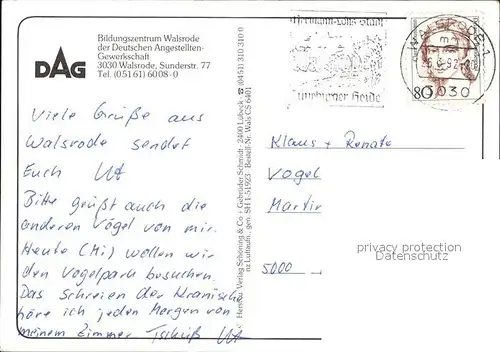 DAG
Bildungszentrum Walsrode
der Deutschen Angestellten-
Gewerkschaft
3030 Walsrode, Sunderstr. 77
Tel. (05161) 6008-0
Hermann-Löns Stadt
Lüneburger Heide
WALSRODE 1
3030
80
Viele Grüße aus
Walsrode sendet
Euch Ut
Bitte grüßt auch die
anderen Vögel von mir.
Heute (Mi) wollen wir
den Vogelpark besuchen.
Das Schreien der Kraniche
höre ich jeden Morgen von
meinem Zimmer Tschüß Ut
Herst. u. Verlag Schöning & Co + Gebrüder Schmidt · 2400 Lübeck · ☎ (0451) 310310 0
Luftaufn.: gen. SH 1-51923 · Bestell-Nr. Wals CS 6401
Klaus + Renate
Vogel
Martir
5000
privacy protection
Datenschutz